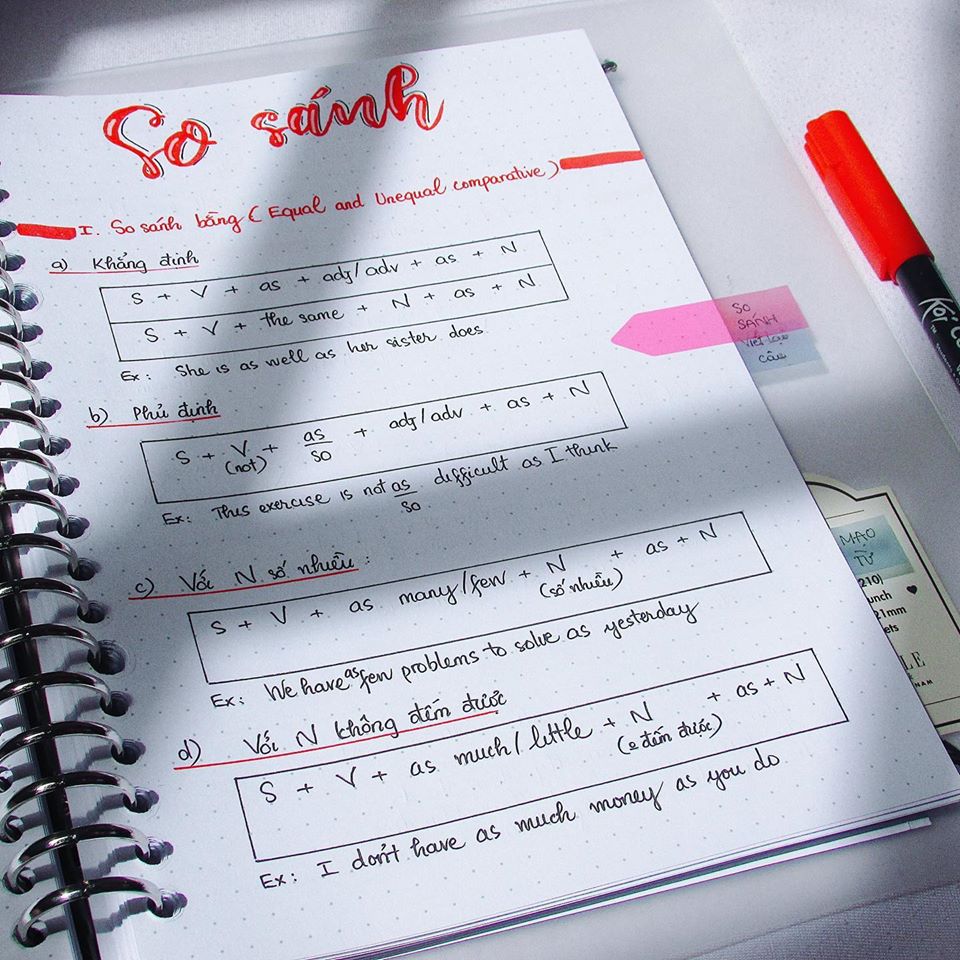 So sánh
I. So sánh bằng (Equal and Unequal comparative)
a) Khẳng định
S + V + as + adj/adv + as + N
S + V + the same + N + as + N
Ex: She is as well as her sister does
b) Phủ định
S + V + as + adj/adv + as + N
(not) so
Ex: This exercise is not as difficult as I think
so
c) Với N số nhiều:
S + V + as many/few + N + as + N
(số nhiều)
Ex: We have as few problems to solve as yesterday
d) Với N không đếm được
S + V + as much/little + N + as + N
(o đếm được)
Ex: I don't have as much money as you do
SO
SÁNH
Viết lại
câu
MẠO
TỪ
210)
unch
21mm
ets
LE
NAM
Kơi